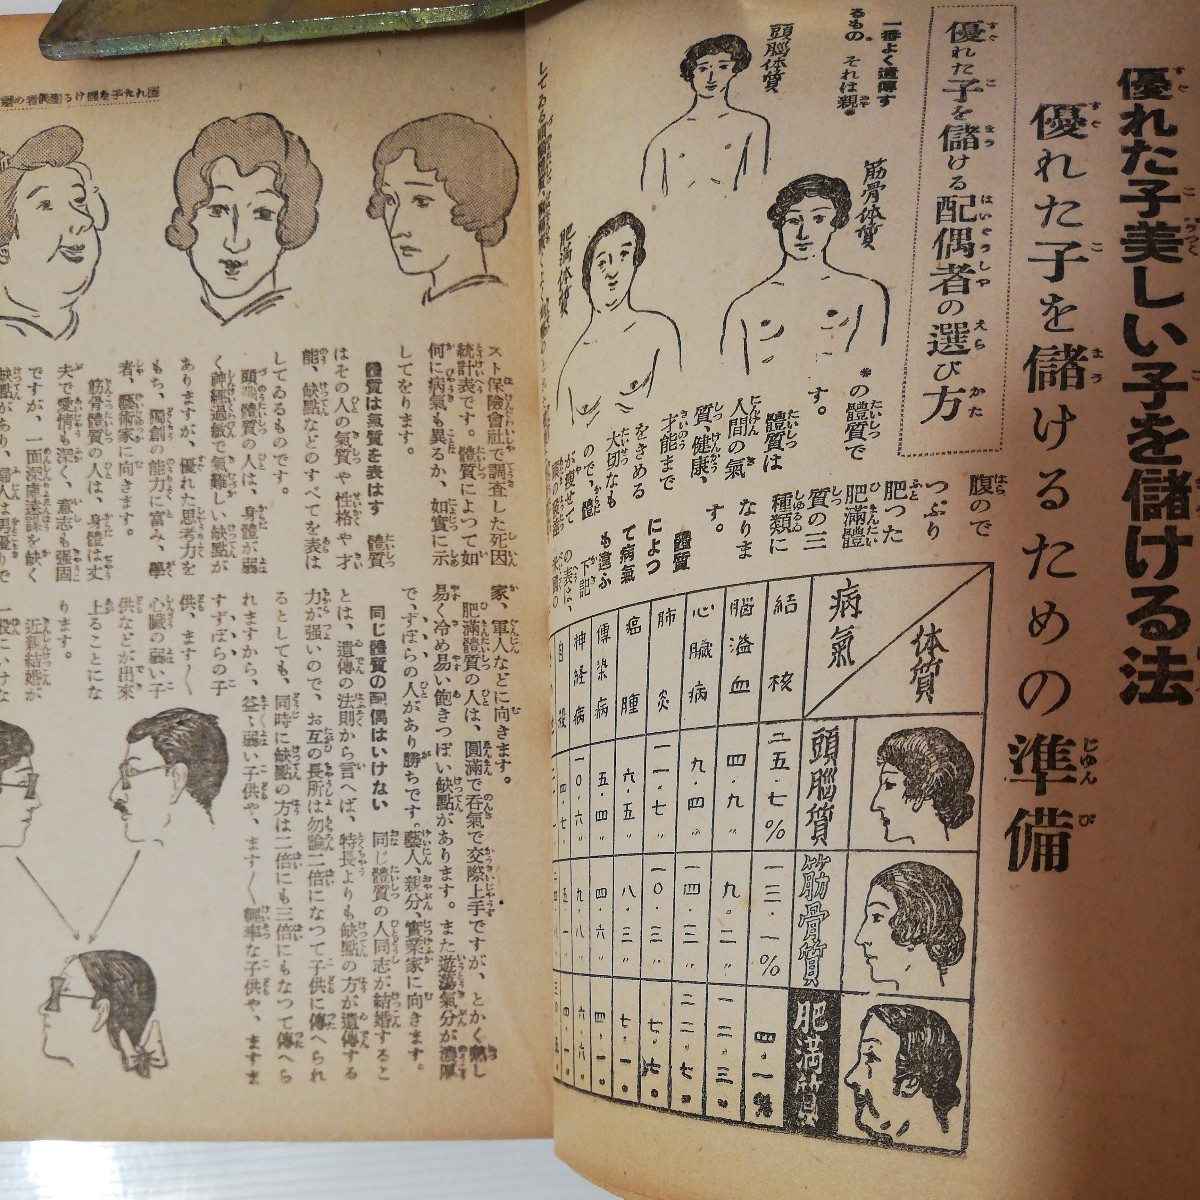 優れた子美しい子を儲ける法
優れた子を儲けるための準備
優れた子を儲ける配偶者の選び方
一番よく遺傳す
るもの それは親
の體質で
す。
體質は
人間の氣
質、健康、
才能まで
をきめる
大切なも
ので、體
が痩せて
頭腦体質
筋骨体質
肥満体質
腹ので
つぷり
肥つた
肥滿體
質の三
種類に
なりま
す。
體質
によつ
て病氣
も違ふ
下記
の表は、
米國の
病氣
体質
頭腦質
筋骨質
肥満質
結核
二五・七%
一三・一%
四・一%
脳溢血
四・九〃
九・二〃
一三・三〃
心臓病
九・四〃
一四・三〃
二二・七〃
肺炎
一一・七〃
一〇・三〃
七・六〃
癌腫
六・五〃
八・三〃
七・一〃
傳染病
五・四〃
四・六〃
四・一〃
神経病
一〇・六〃
九・八〃
六・六〃
自殺
スト保險會社で調査した死因
統計表です。體質によつて如
何に病氣も異るか、如實に示
してをります。
體質は氣質を表はす 體質
はその人の氣質や性格や才
能、缺點などのすべてを表は
してゐるものです。
頭腦體質の人は、身體が弱
く神經過敏で氣難しい缺點が
ありますが、優れた思考力を
もち、獨創の能力に富み、學
者、藝術家に向きます。
筋骨體質の人は、身體は丈
夫で愛情も深く、意志も强固
ですが、一面深慮遠謀を缺く
缺點があり、婦人は男優りで
家、軍人などに向きます。
肥滿體質の人は、圓滿で呑氣で交際上手ですが、とかく熱し
易く冷め易い飽きつぽい缺點があります。また遊蕩氣分が濃厚
で、ずぼらの人があり勝ちです。藝人、親分、實業家に向きます。
同じ體質の配偶はいけない 同じ體質の人同志が結婚するこ
とは、遺傳の法則から言へば、特長よりも缺點の方が遺傳する
力が强いので、お互の長所は勿論二倍になつて子供に傳へられ
るとしても、同時に缺點の方は二倍にも三倍にもなつて傳へら
れますから、益々弱い子供や、ます〱輕率な子供や、ますま
すずぼらの子
供、ます〱
心臟の弱い子
供などが出來
上ることにな
ります。
近親結婚が
一般にいけな